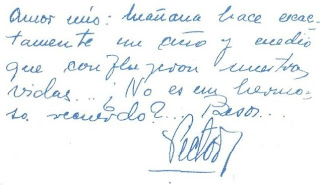 Amor mío: Mañana hace exac-
tamente un año y medio
que confluyeron nuestras
vidas...¿No es un hermo-
so recuerdo?... Besos...